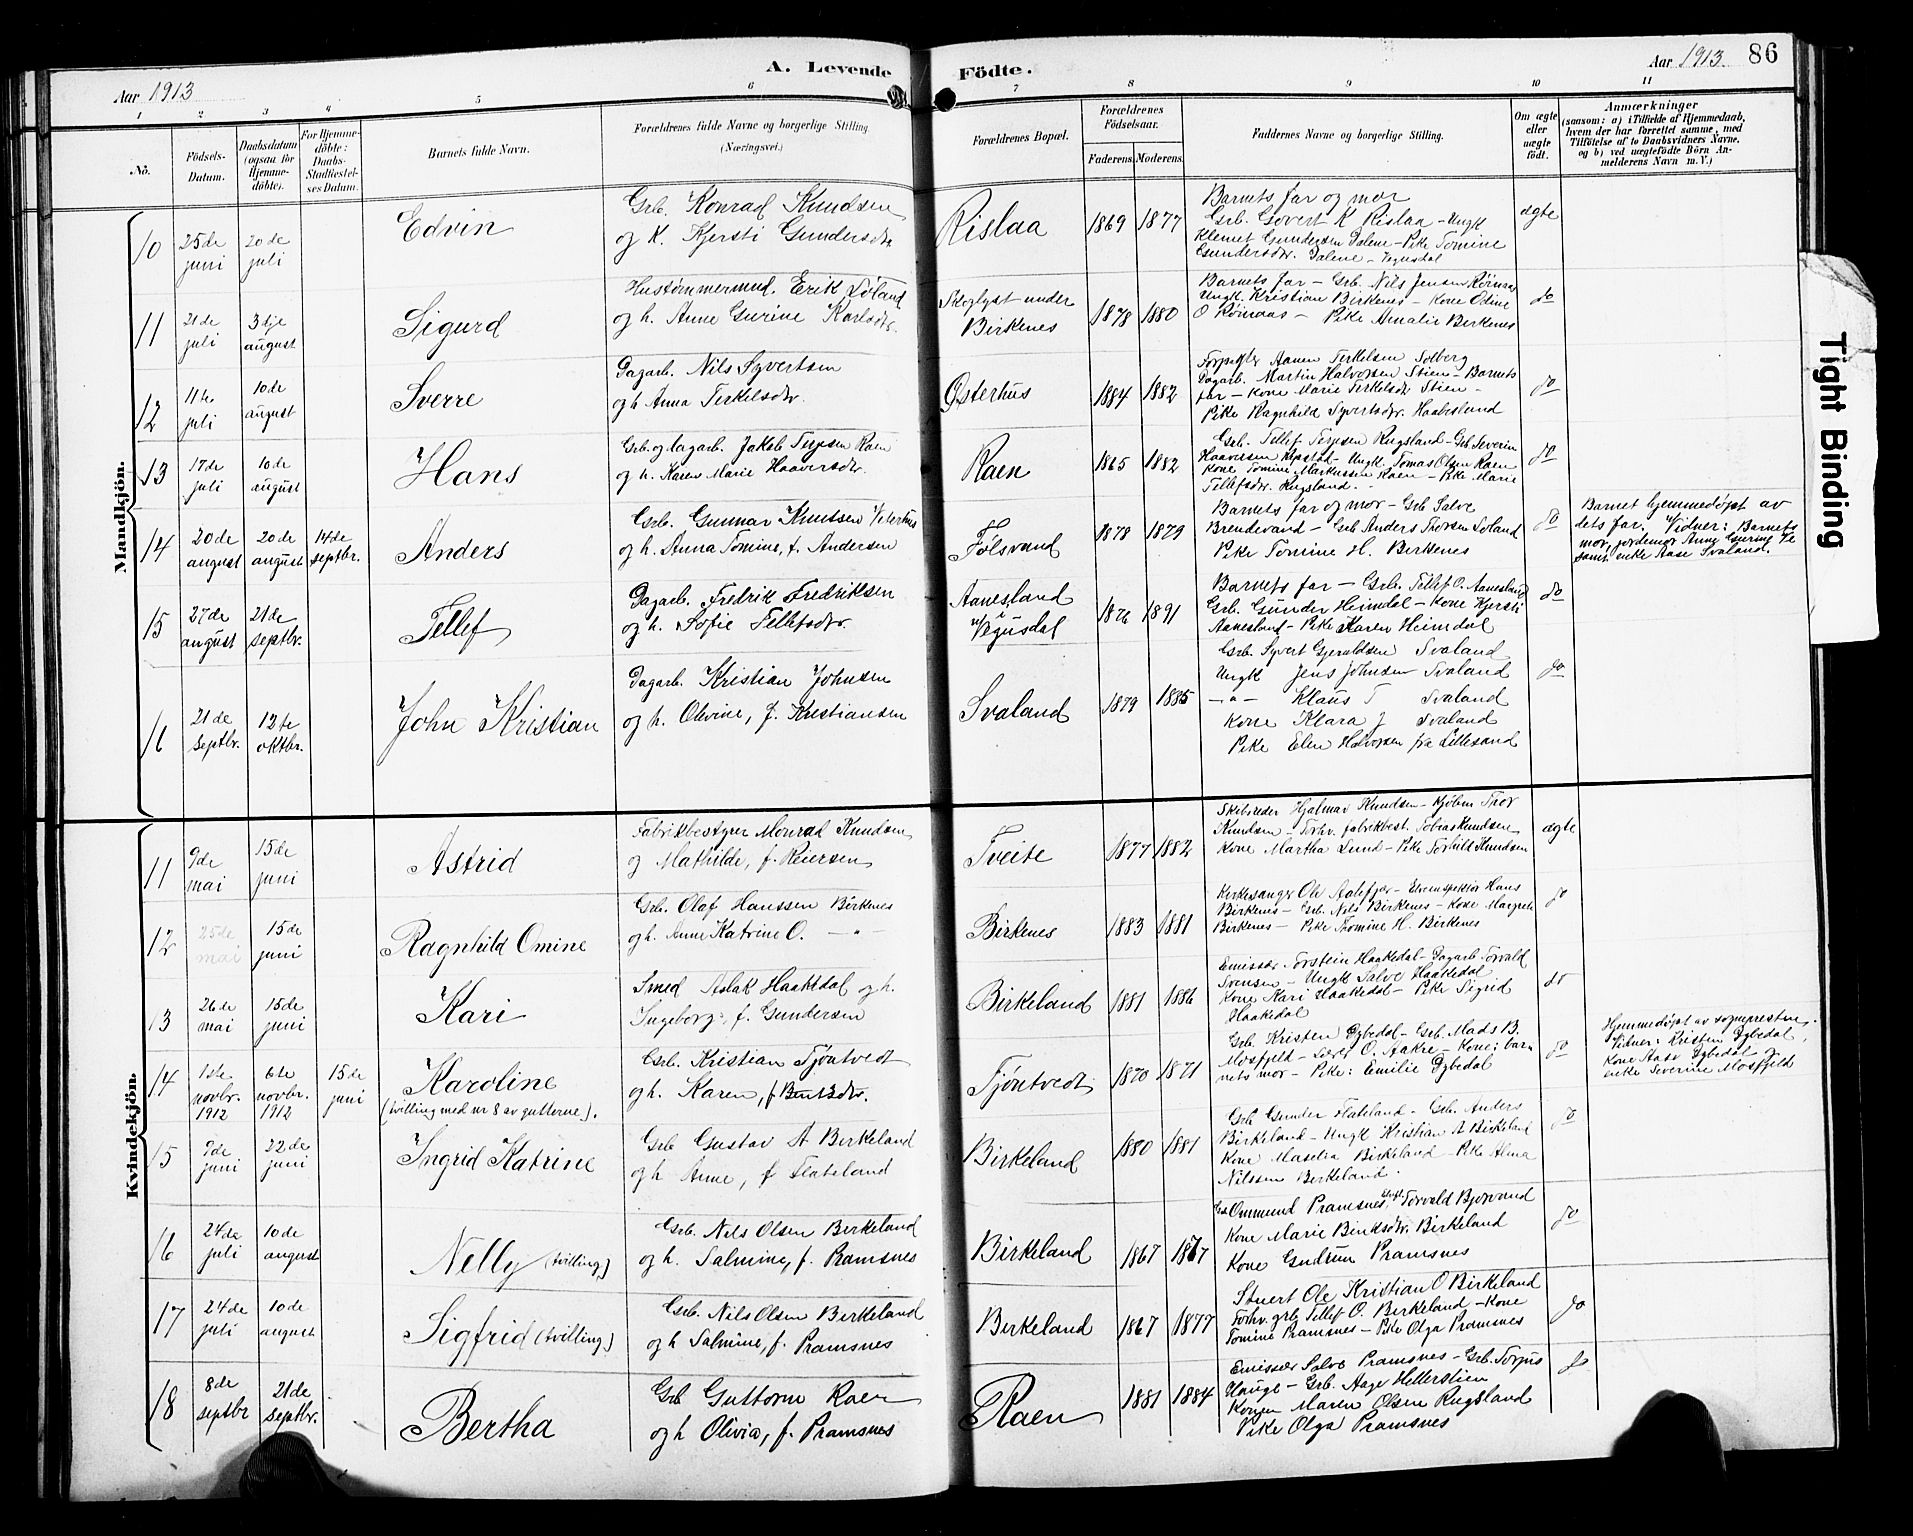 A. Levende Födte.
Aar 1913
Aar 1913. 86
1 2 3 4 5 6 7 8 9 10 11
No.
Födsels-Datum.
Daabsdatum (ogsaa for Hjemmedöbte).
For Hjemmedöbte: Daabs-Stadfæstelses Datum.
Barnets fulde Navn.
Forældrenes fulde Navne og borgerlige Stilling. (Næringsvei.)
Forældrenes Bopæl.
Forældrenes Födselsaar.
Faderens. Moderens.
Faddernes Navne og borgerlige Stilling.
Om ægte eller uægte födt.
Anmærkninger
(saasom: a) i Tilfælde af Hjemmedaab, hvem der har forrettet samme, med Tilföielse af to Daabsvidners Navne, og b) ved uægtefödte Börn Anmelderens Navn m. V.)
Mandkjön.
10 25de juni 20de juli Edvin
Grb. Konrad Knudsen
og K. Kjersti Gundersdtr
Rislaa 1869 1877
Barnets far og mor
Grb. Govert K Rislaa - Ungk
Klemet Gundersen Dalene - Pike Tomine
Gundersdtr. Dalene - Vegusdal
ægte
11 21de juli 3dje august Sigurd
Hustømmermnd. Erik Søland
og h. Anne Gurine Karlsdtr.
Skoglyst under Birkenes 1878 1880
Barnets far - Grb. Nils Jensen
Ungk. Kristian Birkenes - Kone Odine
O Rømaas - Pike Amalie Birkenes
do
12 11te juli 10de august Sverre
Dagarb. Nils Syvertsen
og h. Anna Terkelsdtr.
Østerhus 1884 1882
Aanen Terkelsen Solberg
Dagarb. Martin Halvorsen Stien - Barnets
far - Kone Marie Terkelsdtr Stien -
Pike Ragnhild Syvertsdtr. Haabesland
do
13 17de juli 10de august Hans
Grb. og dagarb. Jakob Terjesen Raen
og h. Karen Marie Haaversdtr.
Raen 1865 1882
Grb. Tellef Terjesen Rugsland - Grb Severin
Haaversen - Ungk. Tomas Olsen Raen
Kone Tomine Markussen Raen - Pike Marie
Tellefsdtr. Rugsland.
do
14 20de august 20de august 14de septbr. Anders
Grb. Gunnar Knutsen
og h. Anna Tomine, f. Andersen
Følsvand 1878 1879
Barnets far og mor - Grb Salve
Brendevand - Grb Anders Thorsen Svaland
Pike Tomine H. Birkenes
do
Barnet hjemmedøpt av
dets far. Vidner: Barnets
mor, jordemor Anne Gurine
samt enke Aase Svaland.
15 27de august 21de septbr. Tellef
Dagarb. Fredrik Fredriksen
og h. Sofie Tellefsdtr.
Aanesland i Vegusdal 1876 1891
Barnets far - Grb. Tellef O. Aanesland
Grb. Gunder Heimdal - Kone Kjersti
Aanesland - Pike Karen Heimdal
do
16 21de septbr. 12te oktbr. John Kristian
Dagarb. Kristian Johnsen
og h. Olevine, f. Kristiansen
Svaland 1879 1885
Grb. Syvert Gjeruldsen Svaland
Ungk Jens Johnsen Svaland
-"- Klaus T Svaland
Kone Klara J Svaland
Pike Elen Halvorsen fra Lillesand
do
Kvindekjön.
11 9de mai 15de juni Astrid
Fabrikbestyrer Monrad Knudsen
og Mathilde, f. Reiersen
Tveite 1877 1882
Skibsreder Hjalmar Knudsen - Kjøbm Thor
Knudsen - Forhv. fabrikbest. Tobias Knudsen
Kone Martha Lund - Pike Torhild Knudsen
ægte
12 25de mai 15de juni Ragnhild Omine
Grb. Olaf Hanssen Birkenes
og h. Anne Katrine O. -"-
Birkenes 1883 1881
Kirkesanger Ole Aalefjær - Elveinspektør Hans
Birkenes - Grb. Nils Birkenes - Kone Margrete
Birkenes - Pike Thomine H. Birkenes
do
13 26de mai 15de juni Kari
Smed Aslak Haakedal og h.
Ingeborg, f. Gundersen
Birkeland 1881 1886
Emissær Torstein Haakedal - Dagarb. Torvald
Svensen - Ungk Salve Haakedal
Kone Kari Haakedal - Pike Sigrid
Haakedal
do
14 1ste novbr. 1912 6te novbr. 1912 15de juni Karoline
(tvilling med nr 8 av guttene).
Grb. Kristian Tjøntvedt
og h. Karen, f.
Tjøntvedt 1870 1871
Grb. Kristen Dybedal - Grb. Mads B.
Mosfjeld - O. Aakre - Kone: barnets
mor - Pike: Emilie Dybedal
do
Hjemmedøpt av sognepresten.
Vidner: Kristen Dybedal,
Kone Aase Dybedal og
enke Severine Mosfjeld
15 9de juni 22de juni Ingrid Katrine
Grb Gustav A Birkeland
og h Anne, f Flateland
Birkeland 1880 1881
Grb Gunder Flateland - Grb. Anders
Birkeland - Ungk Kristian A Birkeland
Kone Maselia Birkeland - Pike Alma
Nilssen Birkeland.
do
16 24de juli 10de august Nelly (tvilling)
Grb. Nils Olsen Birkeland
og h. Salmine, f. Pramsnes
Birkeland 1867 1877
Grb Ommund Pramsnes, Ungk Torvald Bjorvand
Kone Marie Birkeland
Kone Gudrun Pramsnes
do
17 24de juli 10de august Sigfrid (tvilling)
Grb. Nils Olsen Birkeland
og h Salmine, f. Pramsnes
Birkeland 1867 1877
Stuert Ole Kristian O Birkeland
Forhv. grb Tellef O. Birkeland - Kone
Tomine Pramsnes - Pike Olga Pramsnes
do
18 8de septbr 21de septbr. Bertha
Grb Guttorm Raen
og h Olivia, f. Pramsnes
Raen 1881 1884
Emissær Salve Pramsnes - Grb. Torjus
Hauge - Grb. Aage Hellerstien
Konen Maren Olsen Rugsland
Pike Olga Pramsnes
do
Tight Binding